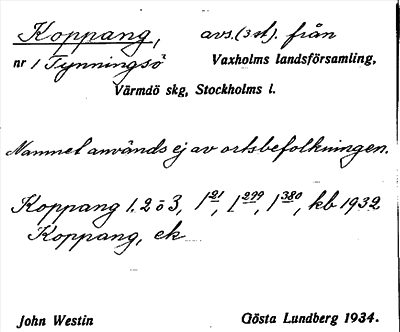 Koppang, avs. (3 st). från
nr 1 Tynningsö Vaxholms landsförsamling,
Värmdö skg, Stockholms l.
Namnet används ej av ortsbefolkningen.
Koppang 1. 2 o 3, 1 21, 1 299, 1 380, kb 1932
Koppang, ek
John Westin Gösta Lundberg 1934.